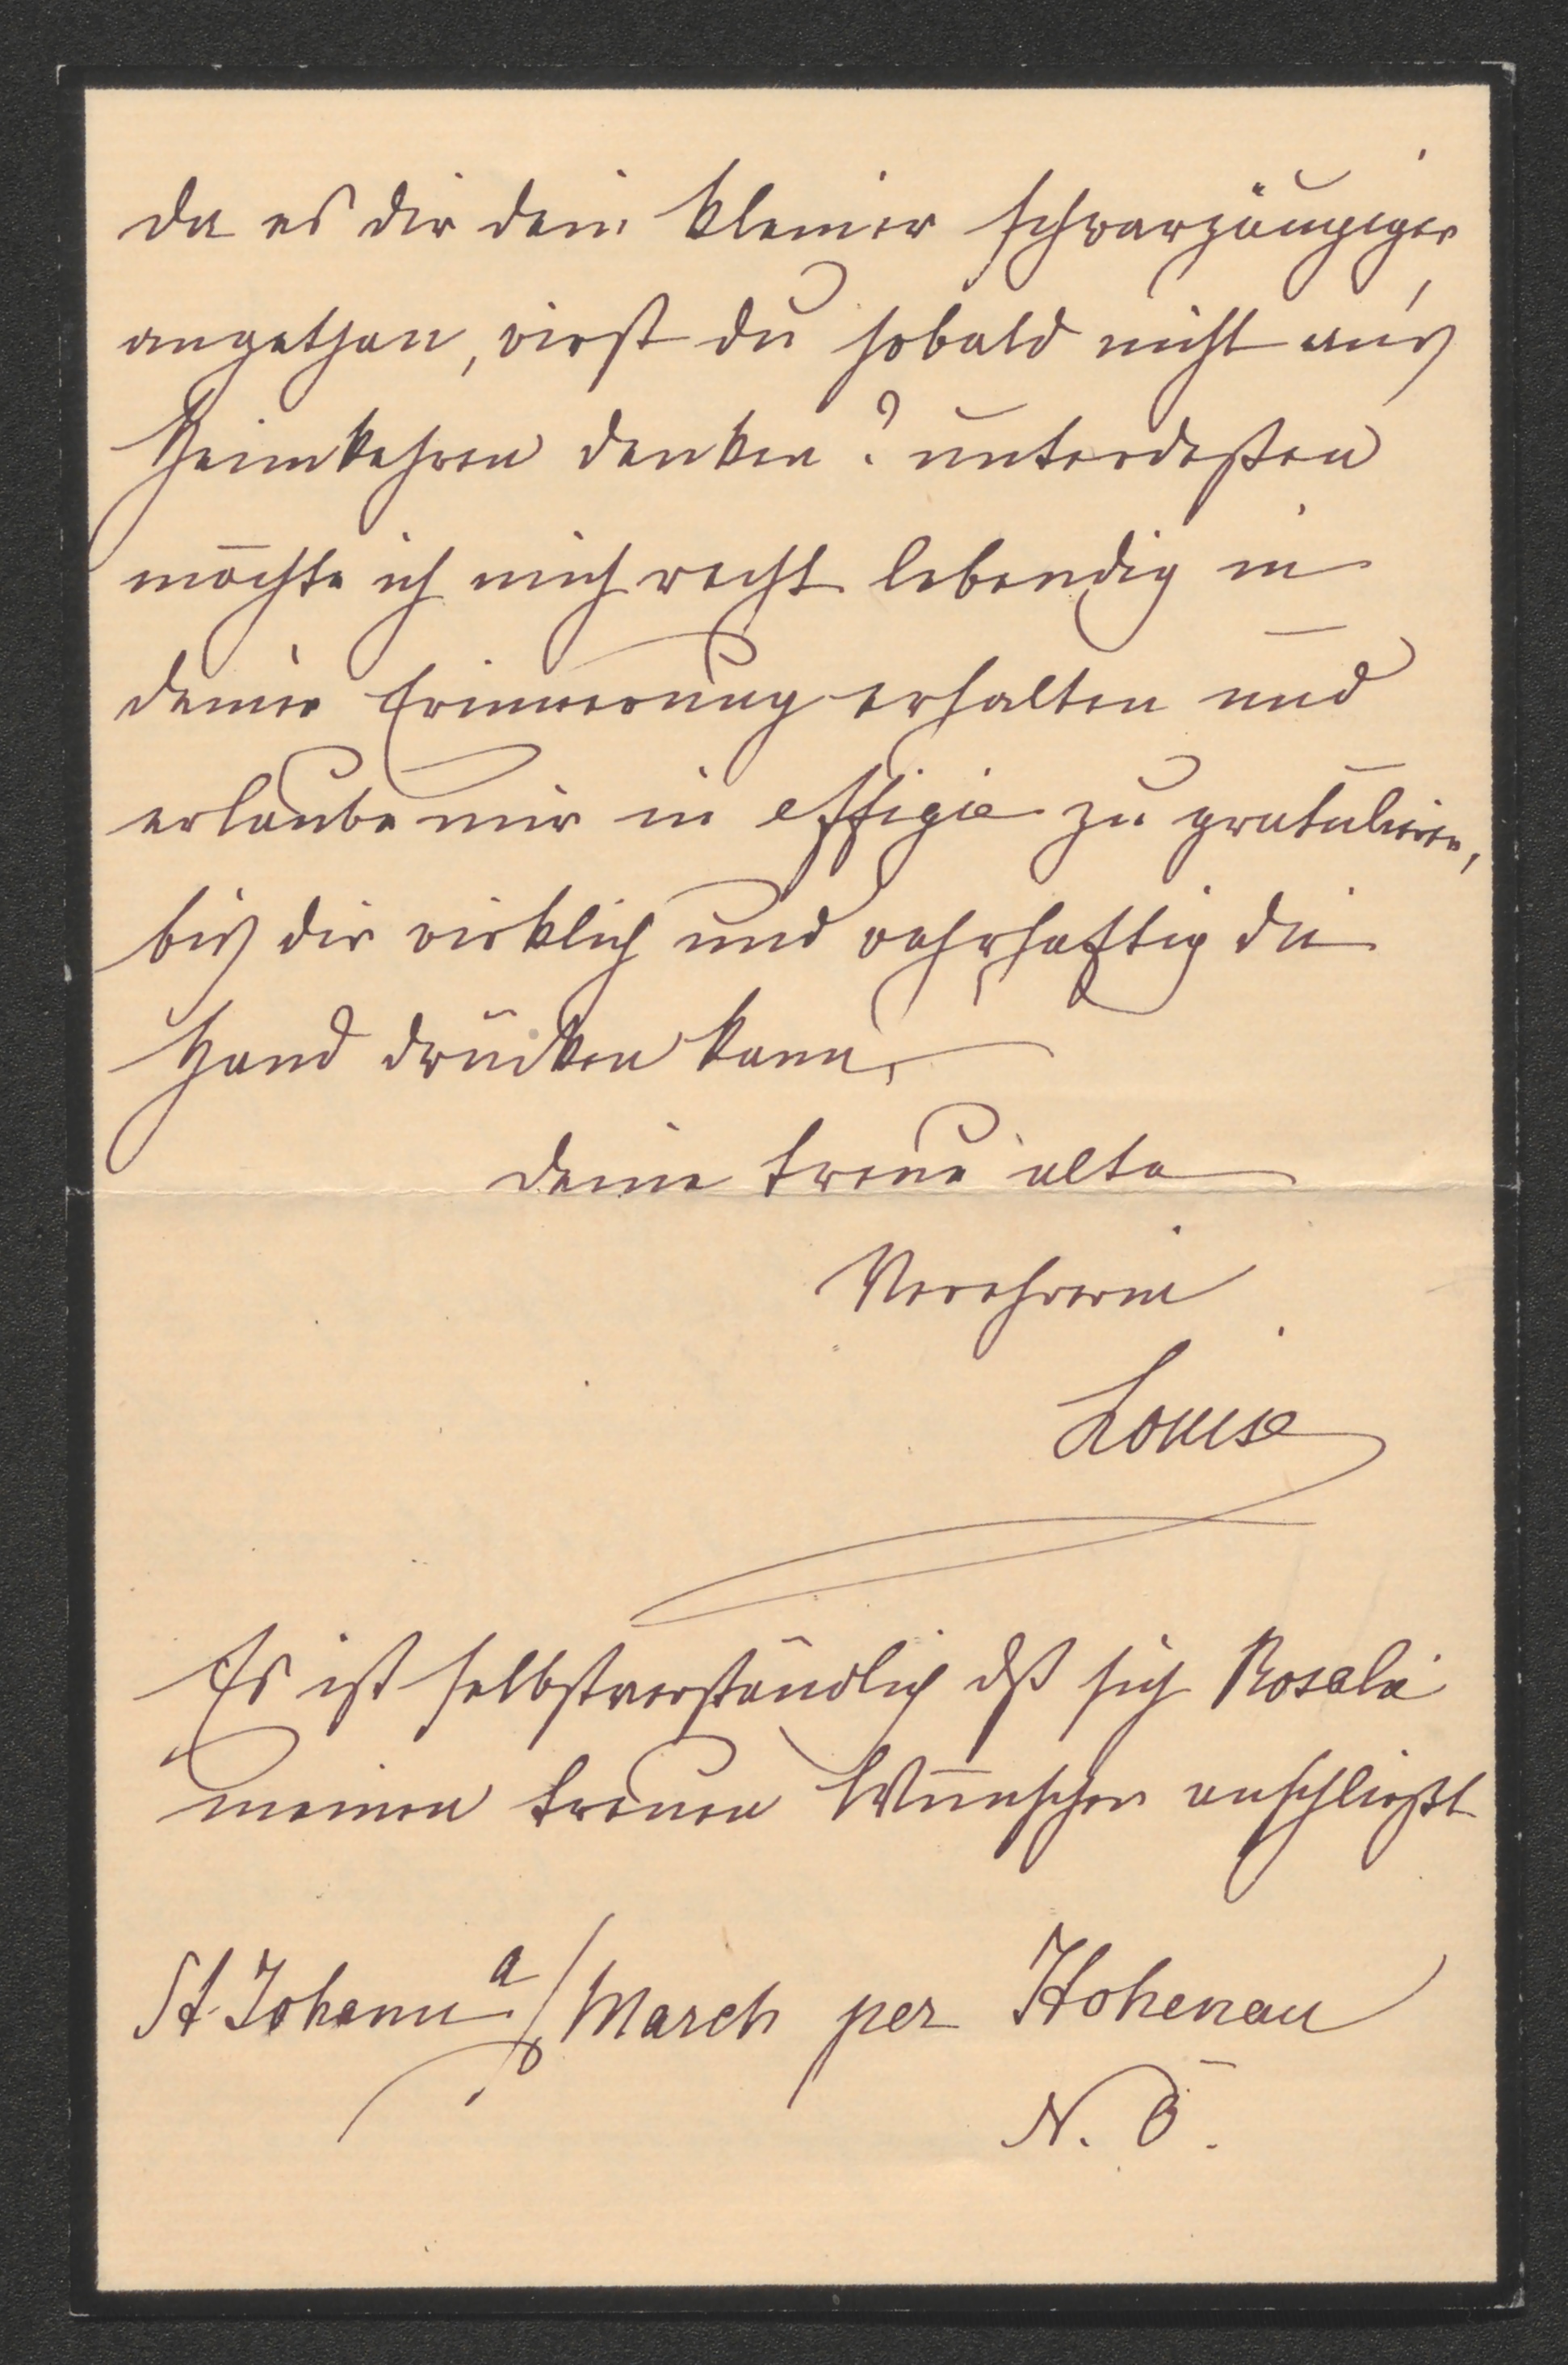 da es dir dein kleiner schwarzäugiger
angethan, wirst du sobald nicht an's
Heimkehren denken? unterdeßen
möchte ich mich recht lebendig in
deiner Erinnerung erhalten und
erlaube mir in effigie zu gratulieren,
bis dir wirklich und wahrhaftig die
Hand drücken kann,
deine treue alte
Verehrerin
Louise
Es ist selbstverständlich dß sich Rosalie
meinen treuen Wünschen anschließt
St. Johann a/March per Hohenau
N. Ö.